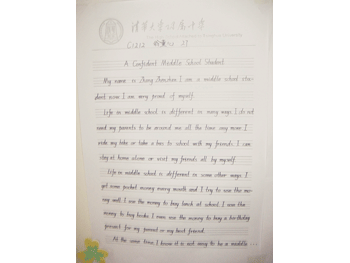 清华大学附属中学
C1212
A Confident Meddle School Student
My name is Zhang Jianchan I am a middle school stu-
dent now I am very proud of myself
Life in middle school is different in many ways I do not
need my parents to be around me all the time any more I
ride my bike or take a bus to school with my friends I can
stay at home alone or visit my friends all by myself
Life in middle school is different in some other ways I
get some pocket money every month and I try to use the mo-
ney well I use the money to buy lunch at school I use the
money to buy books I even use the money to buy a birthday
present for my parent or my best friend.
At the same time I know it is not easy to be a middle